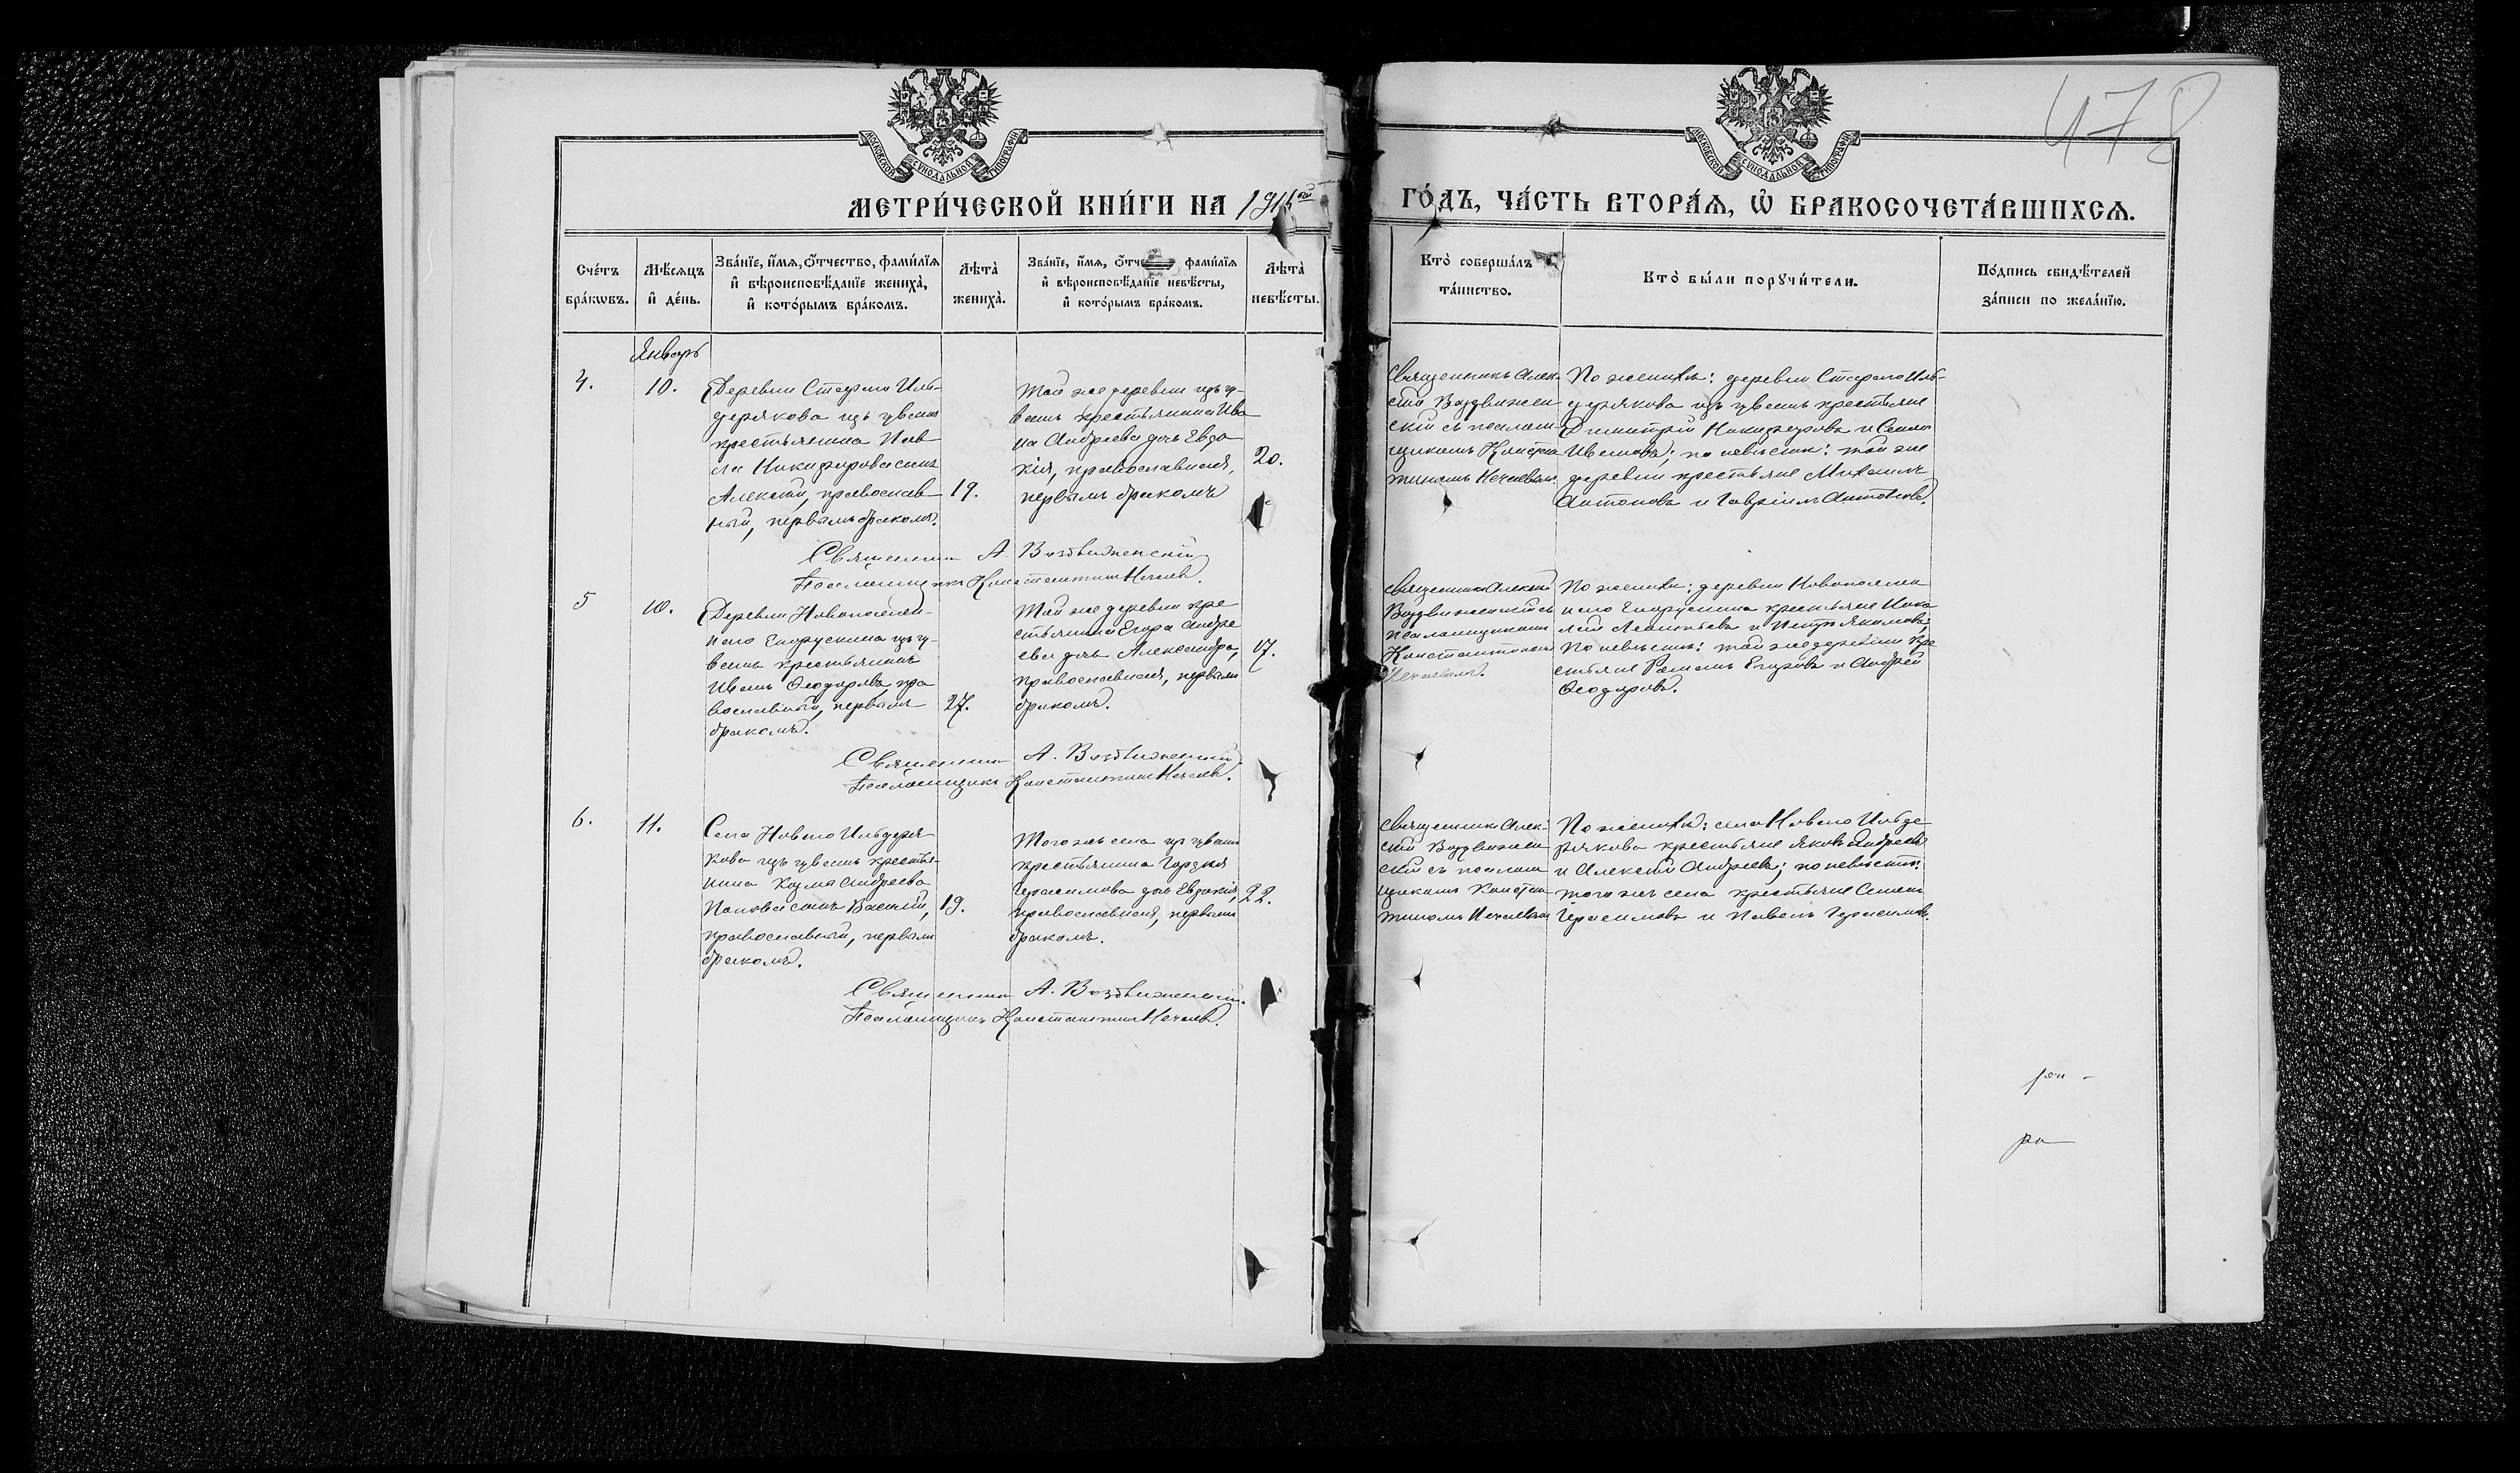 478
МОСКОВСКОЙ СУНОДАЛЬНОЙ ТИПОГРАФІИ
МОСКОВСКОЙ СУНОДАЛЬНОЙ ТИПОГРАФІИ
МЕТРИ́ЧЕСКОЙ КНИ́ГИ НА 191 ой
ГО́ДЪ, ЧА́СТЬ ВТОРА́Ѧ, Ѡ҆ БРАКОСОЧЕТА́ВШИХСѦ.
Сче́тъ бра́кѡвъ.
Мѣ́сѧцъ и҆ де́нь.
Зва́нїе, и҆́мѧ, ѻ҆́тчество, фами́лїѧ
и҆ вѣроисповѣ́данїе жениха̀,
и҆ кото́рымъ бра́комъ.
Лѣ́та̀ жениха̀.
Зва́нїе, и҆́мѧ, ѻ҆́тч фами́лїѧ
и҆ вѣроисповѣ́данїе невѣ́сты,
и҆ кото́рымъ бра́комъ.
Лѣ́та̀ невѣ́сты.
Кто̀ соверша́лъ
та́инство.
Кто̀ бы́ли порꙋчи́тели.
По́дпись свидѣ́телей
за́писи по жела́нїю.
Январь
4.
10.
Деревни Стараго Иль-
дерякова изъ чувашъ
крестьянина Пав-
ла Никифорова сынъ
Алексій, православ-
ный, первымъ бракомъ.
19.
Той же деревни изъ чу-
вашъ крестьянина Ива
на Андреева дочь Евдо
кія, православная,
первымъ бракомъ
20.
Священникъ Алек-
сій Воздвижен
скій съ псалом-
щикомъ Констан
тиномъ Нечаевым
По женихѣ: деревни Стараго Иль-
дерякова изъ чувашъ крестьяне
Димитрій Никифоровъ и Семенъ
Ивановъ; по невѣстѣ: той же
деревни крестьяне Михаилъ
Антоновъ и Гавріилъ Антоновъ.
Священникъ А. Воздвиженскій
Псаломщикъ Константинъ Нечаевъ.
5
10.
Деревни Новопоселен-
наго изъ чу-
вашъ крестьянинъ
Иванъ Ѳеодоровъ, пра
вославный, первымъ
бракомъ.
27.
Той же деревни кре
стьянина Егора Андре
ева дочь Александра,
православная, первымъ
бракомъ.
17.
Священникъ Алексій
Воздвиженскій съ
псаломщикомъ
Константиномъ
Нечаевымъ.
По женихѣ: деревни Новопоселен
наго крестьяне Нико
лай Леонтьевъ и Петръ Якимовъ;
По невѣстѣ: той же деревни кре
стьяне Романъ Егоровъ и Андрей
Ѳеодоровъ.
Священникъ А. Воздвиженскій
Псаломщикъ Константинъ Нечаевъ.
6.
11.
Села Новаго Ильдеря
кова изъ чувашъ крестья-
нина Козмы Андреева
Попова сынъ Василій,
православный, первымъ
бракомъ.
19.
Того жъ села изъ чувашъ
крестьянина Гордѣя
Герасимова дочь Евдокія,
православная, первымъ
бракомъ.
22.
Священникъ Алек-
сій Воздвижен
скій съ псалом
щикомъ Констан
тиномъ Нечаевым
По женихѣ: села Новаго Ильде
рякова крестьяне Яковъ Андреевъ
и Алексій Андреевъ; по невѣстѣ:
того жъ села крестьяне Семенъ
Герасимовъ и Павелъ Герасимовъ.
Священникъ А. Воздвиженскій.
Псаломщикъ Константинъ Нечаевъ.